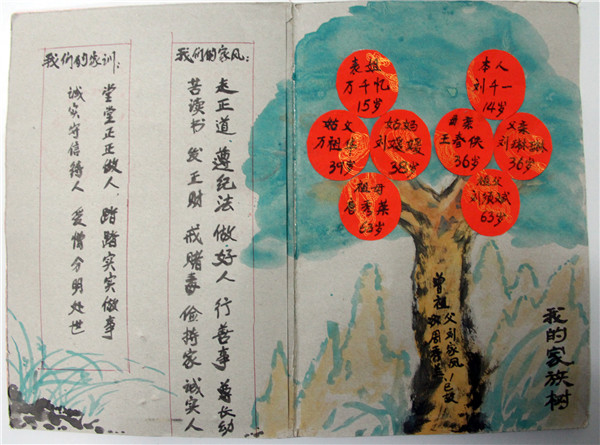 我们的家风:
走正道、遵纪法 做好人 行善事 尊长幼
苦读书 发正财 戒赌毒 俭持家 诚实人
我们的家训:
堂堂正正做人、踏踏实实做事
诚实守信待人 爱憎分明处世
表姐
万千忆
15岁
本人
刘千一
14岁
姑父
万祖华
39岁
姑妈
刘媛媛
38岁
母亲
王春侠
36岁
父亲
刘
36岁
祖母
秀英
63岁
祖父
刘须斌
63岁
曾祖
父刘家凤
周 已故
我的家族树